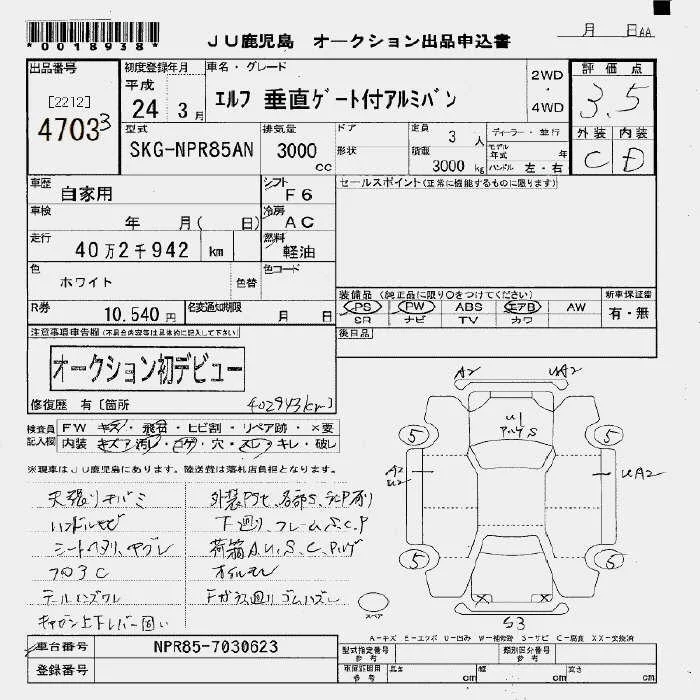 *0018938*
JU鹿児島 オークション出品申込書
月 日AA
出品番号 初度登録年月 車名・グレード 評価点
[2212] 平成 2WD
47033 24 3月 エルフ 垂直ゲート付アルミバン ・ 3.5
4WD
型式 排気量 ドア 定員 3人 ディーラー・並行 外装 内装
SKG-NPR85AN 3000cc 形状 積載 3000kg モデル年式 年 C D
ハンドル 左・右
車歴 自家用 シフト F6 セールスポイント(正常に機能するものに限ります)
車検 年 月( 日) 冷房 AC
走行 40万2千942 km 燃料 軽油
色 ホワイト 色替 色コード
装備品(純正品に限り○をつけてください) 新車保証書
R券 10.540円 名変通知期限 月 日 PS PW ABS エアB AW 有・無
SR ナビ TV カワ
注意事項申告欄(不具合内容等は具体的に記入して下さい) 後日品
オークション初デビュー
修復歴 有[箇所 402943km]
検査員 FW キズ・飛石・ヒビ割・リペア跡・×要
記入欄 内装 キズ・汚レ・コゲ・穴・スレ・キレ・破レ
※現車はJU鹿児島にあります。陸送費は落札店負担となります。
天張りキバミ
ハンドルサビ 下廻り、フレームS.C.P
シートヘタリ、ヤブレ 荷箱A.U.S.C.
フロアC オイルモレ
キャビン上下レバー固い
A2 UA2
U1
S
5 5
A2 UA2
U2
5 5
X X
S3
スペア
A-キズ E-エクボ U-凹み W-補修跡 S-サビ C-腐食 XX-交換済
車台番号 NPR85-7030623 型式指定番号 参考 類別区分番号 参考
登録番号 車庫証明用 参考 長さ cm 幅 cm 高さ cm